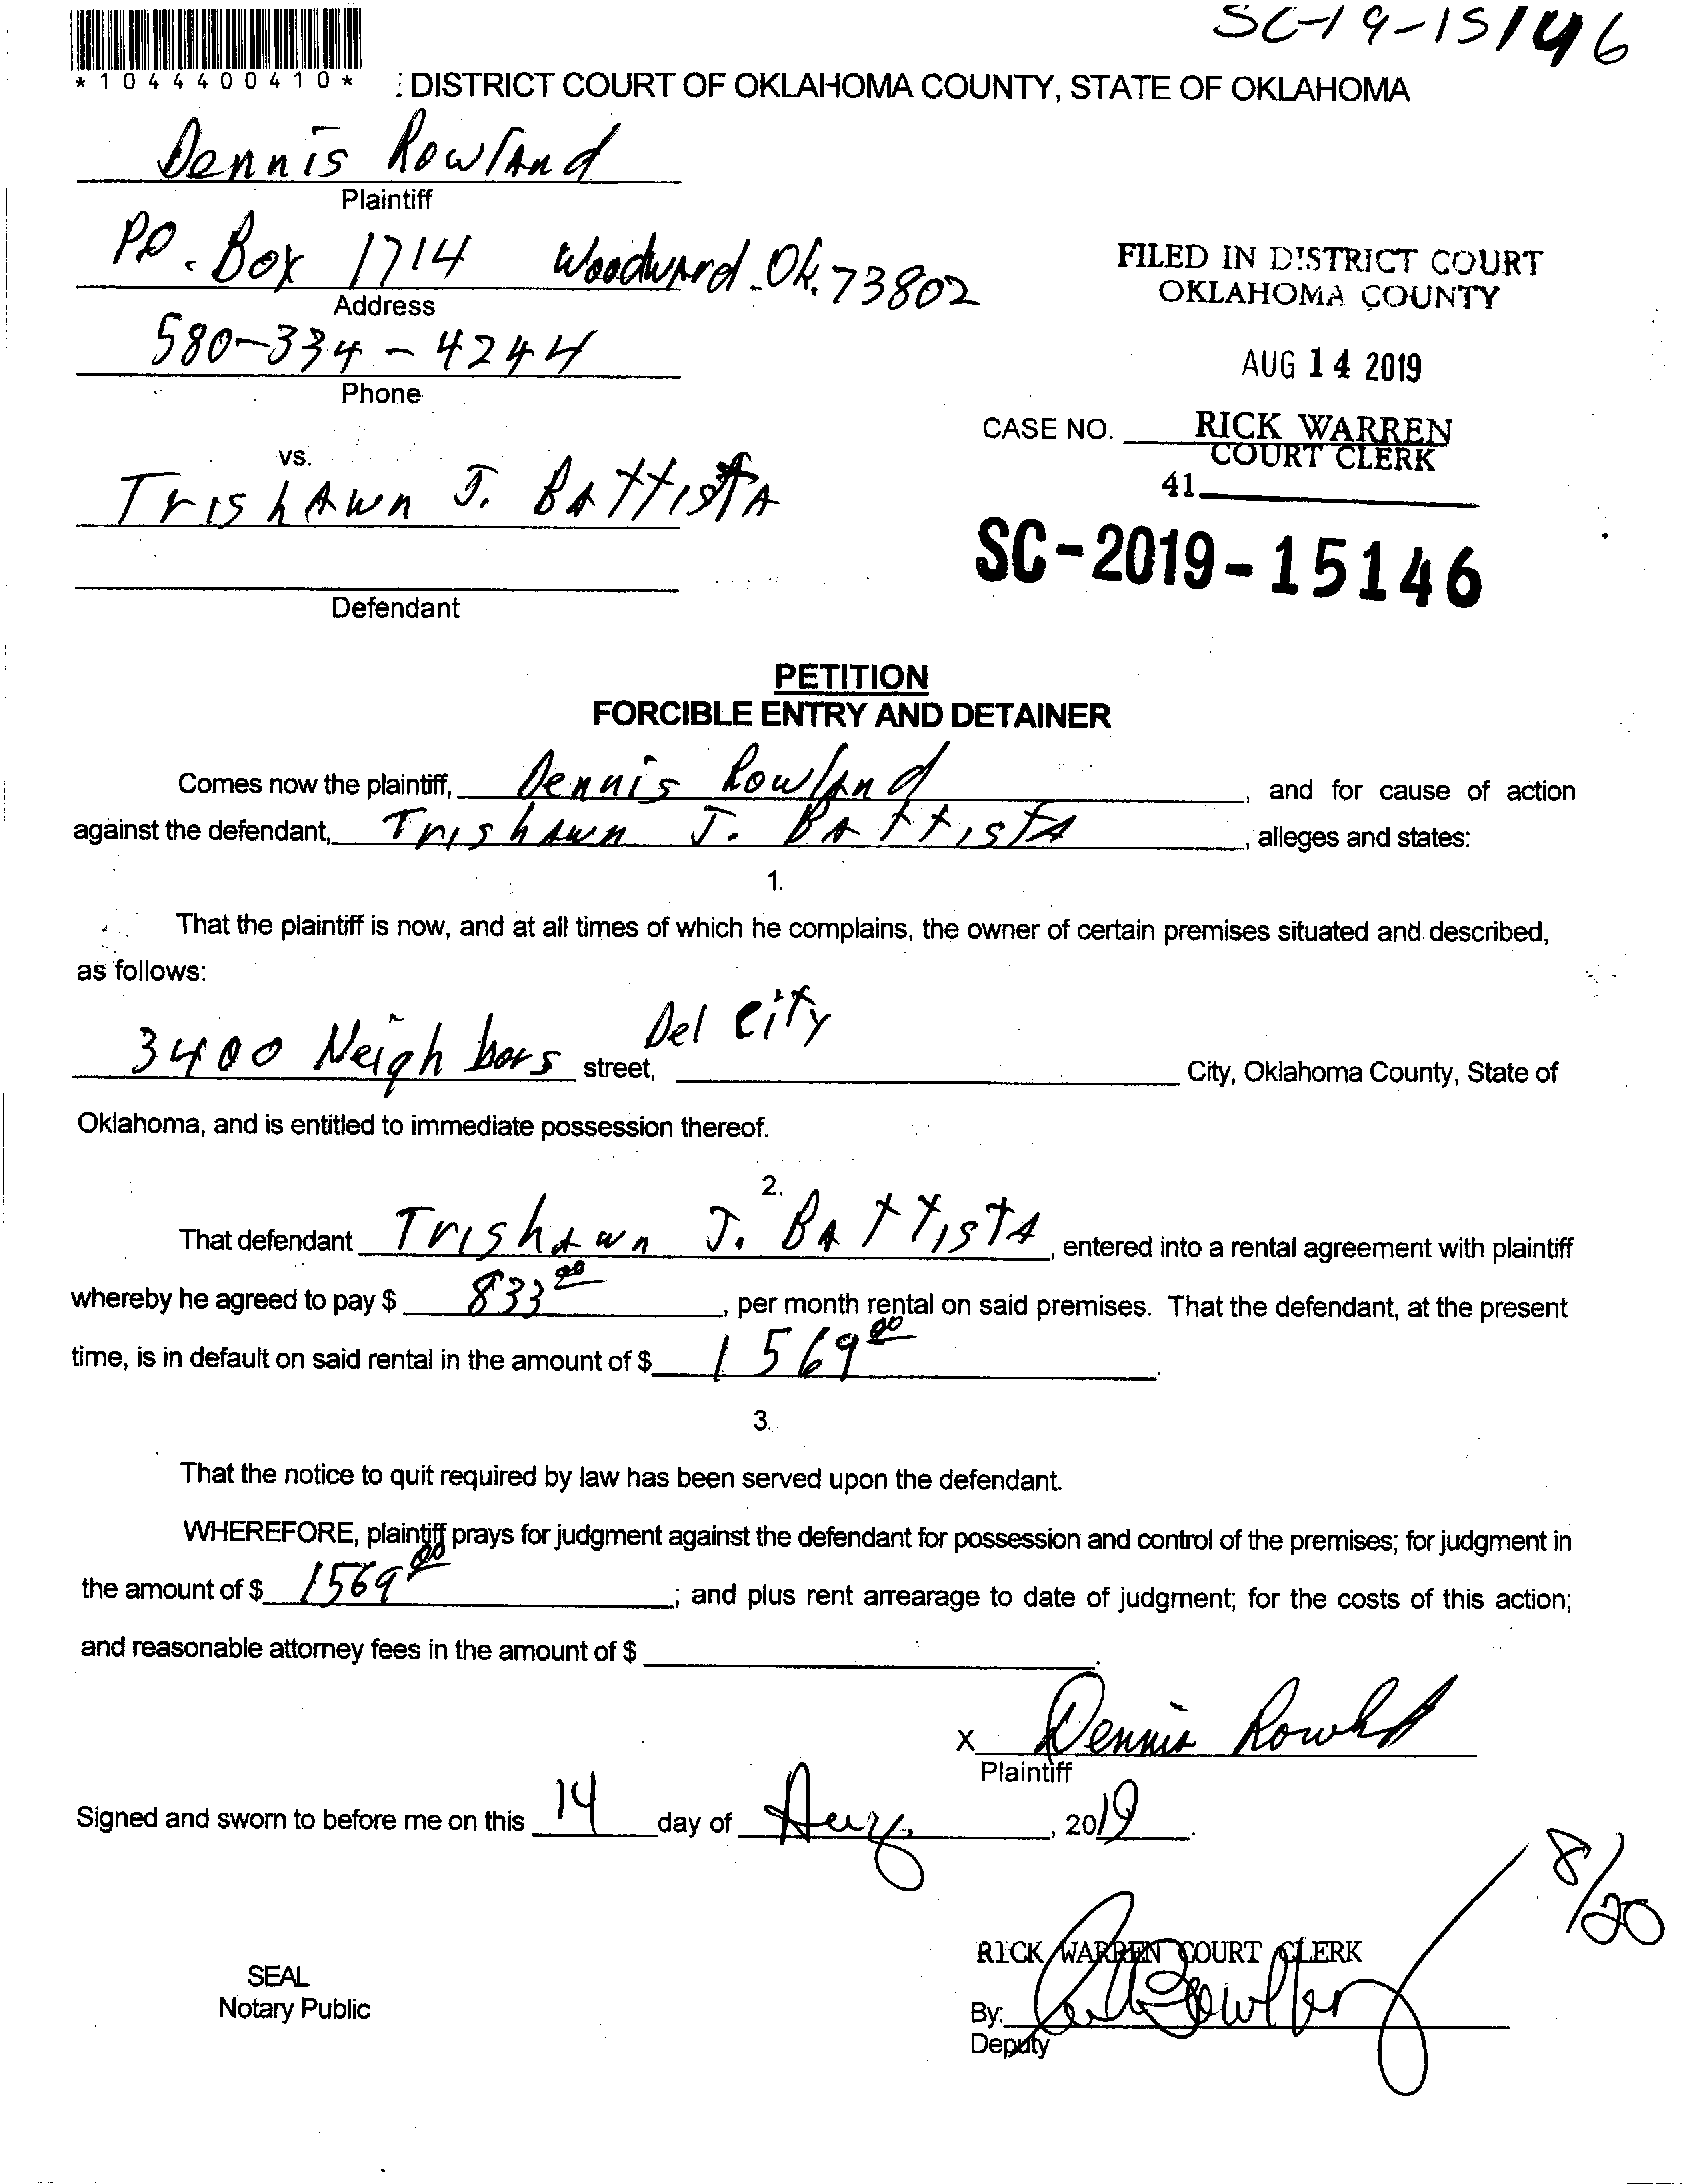 SC-19-15146
*1044400410*
: DISTRICT COURT OF OKLAHOMA COUNTY, STATE OF OKLAHOMA
Dennis Rowland
Plaintiff
P.O. Box 1714 Woodward Ok. 73802
Address
580-334-4244
Phone
FILED IN DISTRICT COURT
OKLAHOMA COUNTY
AUG 14 2019
CASE NO. RICK WARREN
COURT CLERK
41
vs.
Trishawn J. Battista
SC-2019-15146
Defendant
PETITION
FORCIBLE ENTRY AND DETAINER
Comes now the plaintiff, Dennis Rowland, and for cause of action
against the defendant, Trishawn J. Battista, alleges and states:
1.
That the plaintiff is now, and at all times of which he complains, the owner of certain premises situated and described,
as follows:
3400 Neighbors street, Del City City, Oklahoma County, State of
Oklahoma, and is entitled to immediate possession thereof.
2.
That defendant Trishawn J. Battista, entered into a rental agreement with plaintiff
whereby he agreed to pay $ 833 00, per month rental on said premises. That the defendant, at the present
time, is in default on said rental in the amount of $ 1569 00.
3.
That the notice to quit required by law has been served upon the defendant.
WHEREFORE, plaintiff prays for judgment against the defendant for possession and control of the premises; for judgment in
the amount of $ 1569 00; and plus rent arrearage to date of judgment; for the costs of this action;
and reasonable attorney fees in the amount of $ .
X Dennis Rowland
Plaintiff
Signed and sworn to before me on this 14 day of Aug, 2019.
8/20
RICK WARREN COURT CLERK
SEAL
Notary Public
By:
Deputy